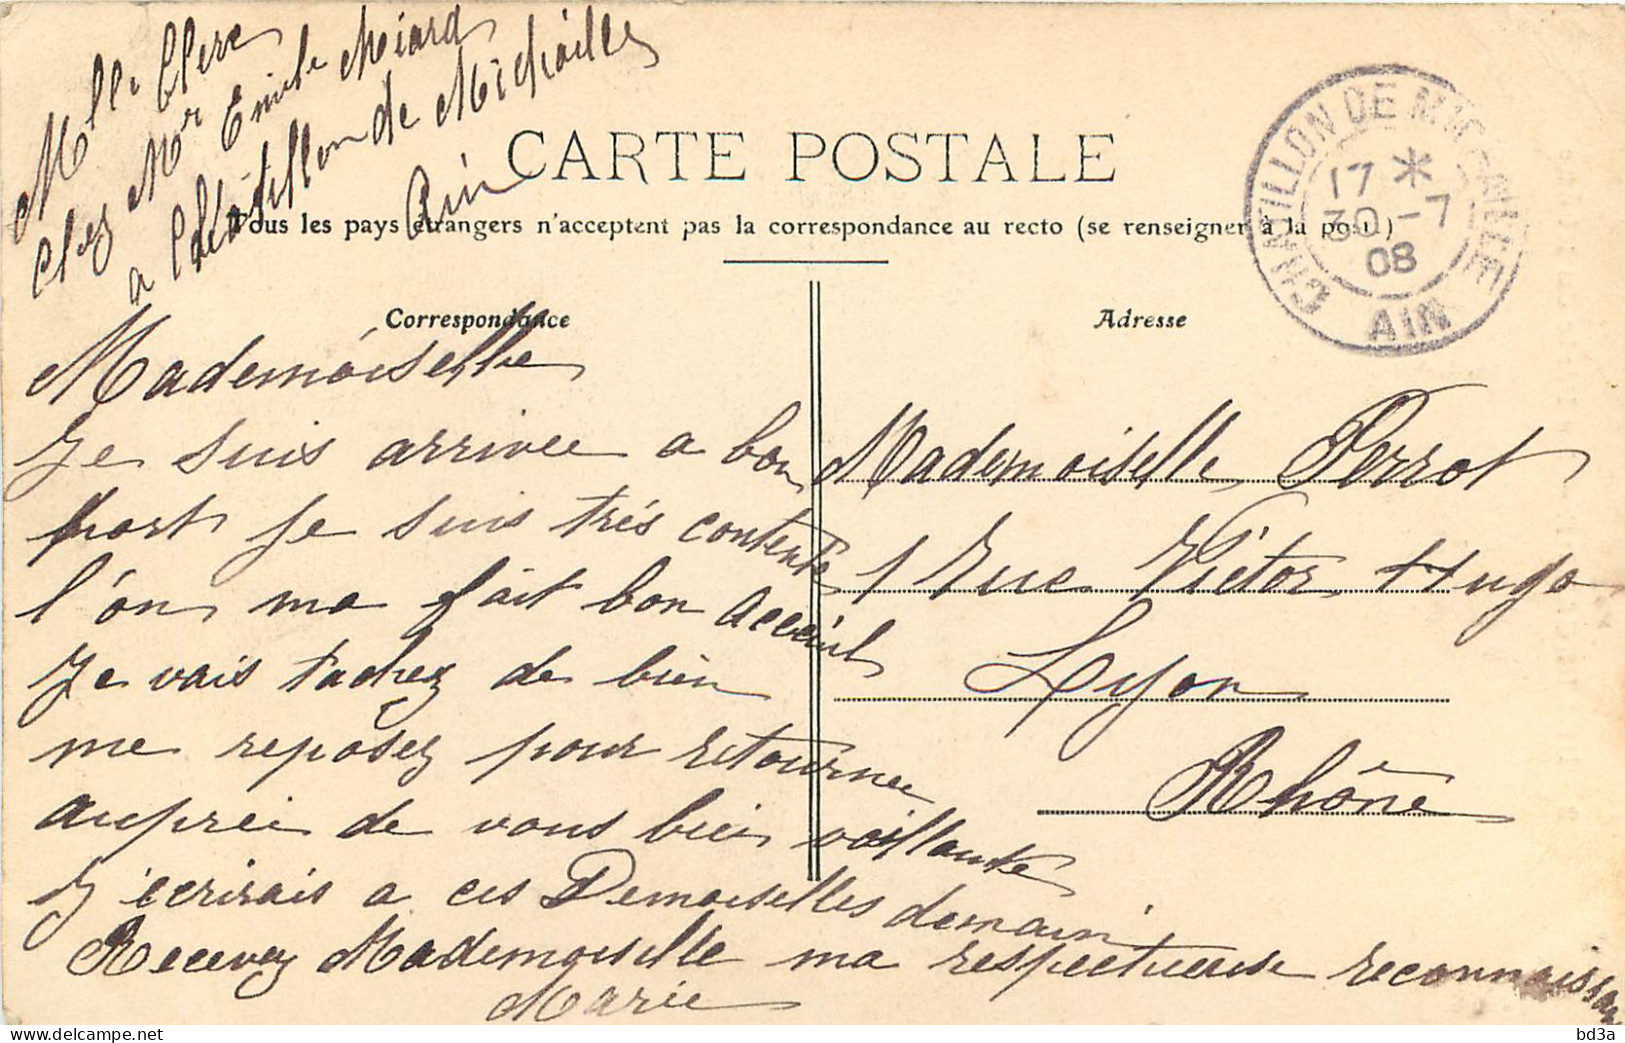 Mlle Clerc
Chez Mr Emile Miard
a Châtillon de Michailles
Ain
CARTE POSTALE
Tous les pays étrangers n'acceptent pas la correspondance au recto (se renseigner à la poste)
CHATILLON DE MICHAILLE
17 *
30 -7
08
AIN
Correspondance
Mademoiselle
Je suis arrivée a bon
port je suis très contente
l'on ma fait bon acceuil
Je vais tachez de bien
me reposez pour retournee
auprei de vous bien vaillante
J'écrirais a ces Demoiselles demain
Recevez Mademoiselle ma respectueuse reconnaissan
Marie
Adresse
Mademoiselle Perrot
1 Rue Victor Hugo
Lyon
Rhône
bd3a